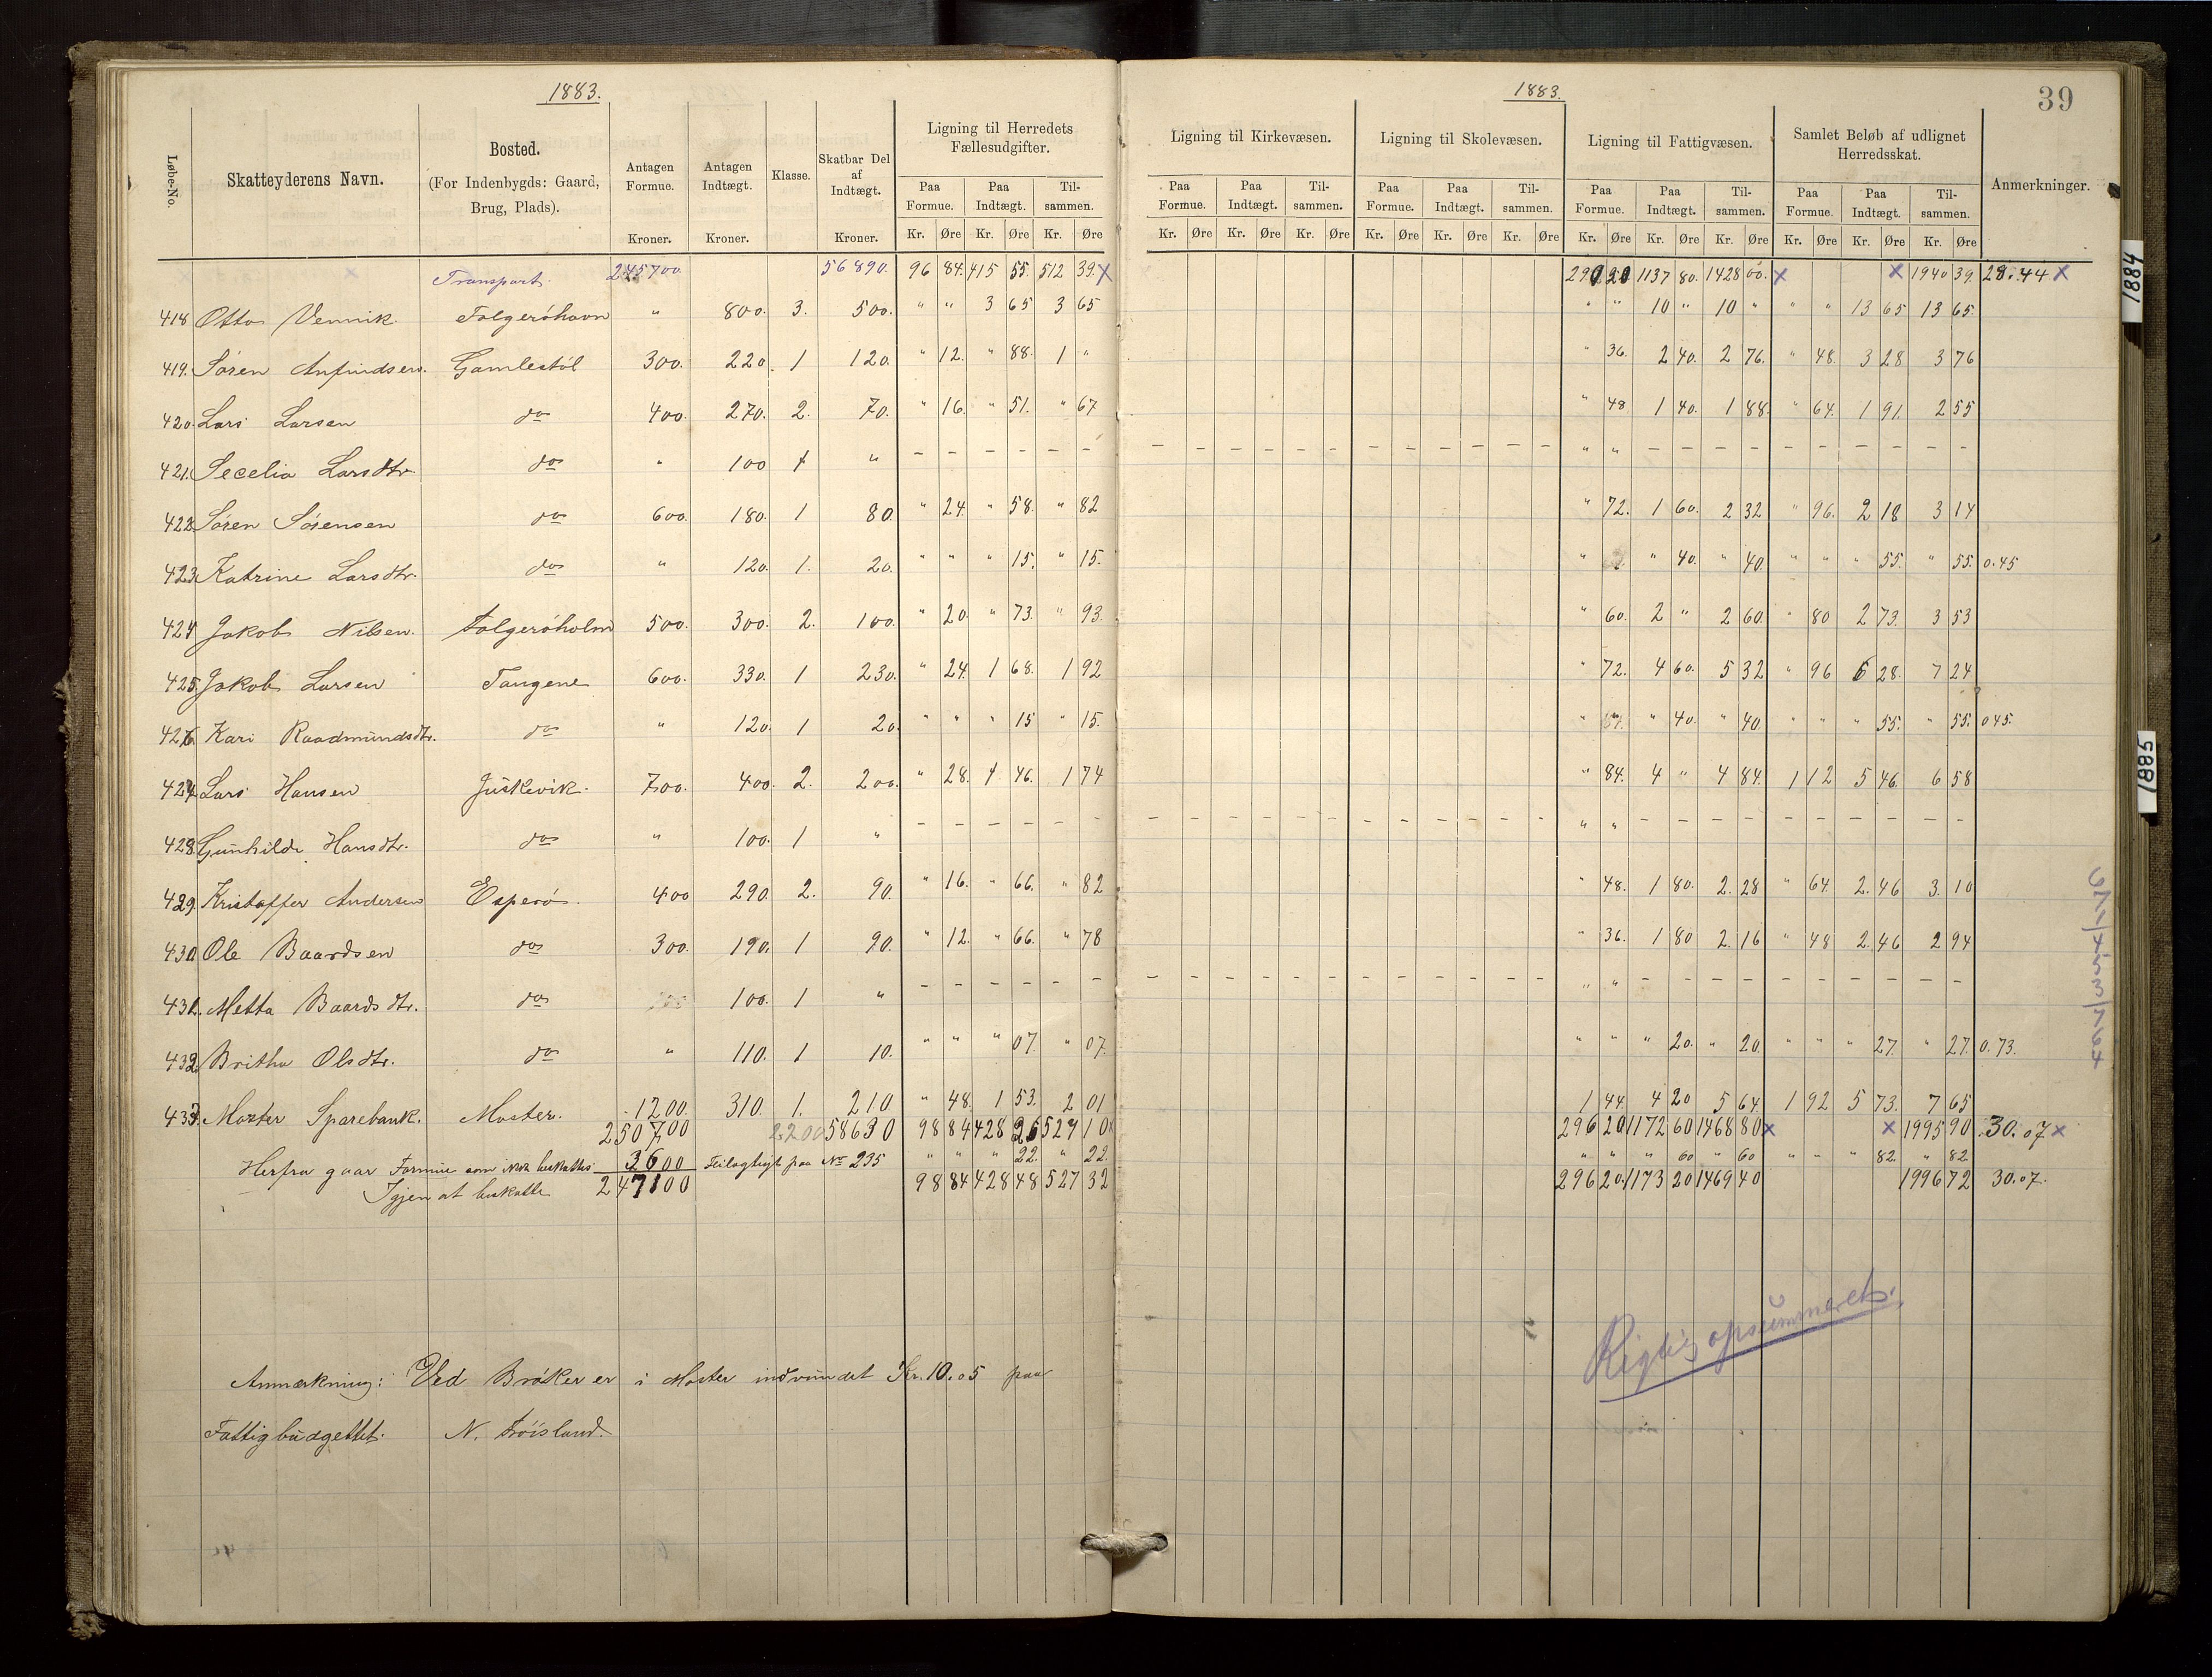 1883.
1883.
39
Løbe-No.
Skatteyderens Navn.
Bosted.
(For Indenbygds: Gaard, Brug, Plads).
Antagen Formue.
Kroner.
Antagen Indtægt.
Kroner.
Klasse.
Skatbar Del af Indtægt.
Kroner.
Ligning til Herredets Fællesudgifter.
Ligning til Kirkevæsen.
Ligning til Skolevæsen.
Ligning til Fattigvæsen.
Samlet Beløb af udlignet Herredsskat.
Anmerkninger.
Paa Formue. Paa Indtægt. Til-sammen.
Paa Formue. Paa Indtægt. Til-sammen.
Paa Formue. Paa Indtægt. Til-sammen.
Paa Formue. Paa Indtægt. Til-sammen.
Paa Formue. Paa Indtægt. Til-sammen.
Kr. Øre Kr. Øre Kr. Øre
Kr. Øre Kr. Øre Kr. Øre
Kr. Øre Kr. Øre Kr. Øre
Kr. Øre Kr. Øre Kr. Øre
Kr. Øre Kr. Øre Kr. Øre
Transport. 245700. 56890. 96 84. 415 55. 512 39. x 290 20 1137 80. 1428 00. x x 1940 39. 28.44 x
418 Otto Vennik. Folgeröhavn " 800. 3. 500. " " 3 65 3 65 " " 10 " 10 " " " 13 65 13 65.
419. Sören Anfindsen. Gamlestöl 300. 220. 1 120. " 12. " 88. 1 " " 36. 2 40. 2 76. " 48. 3 28 3 76
420. Lars Larsen do 400. 270. 2. 70. " 16. " 51. " 67 " 48 1 40. 1 88. " 64. 1 91. 2 55
421. Secelia Larsdtr. do " 100 1 " – – – – – – – – – – – – – – – – – – " " – – – – – – – – – –
422 Sören Sörensen do 600. 180. 1 80. " 24. " 58. " 82 " 72. 1 60. 2 32 " 96. 2 18 3 14
423. Katrine Larsdtr. do " 120. 1. 20. " " " 15. " 15. " " 40. " 40. " " " 55. " 55.0.45
424 Jakob Nilsen. Folgeröholm 500. 300. 2. 100. " 20. " 73. " 93. " 60. 2 " 2 60. " 80 2 73. 3 53
425. Jakob Larsen Tangene 600. 330. 1 230. " 24. 1 68. 1 92 " 72. 4 60. 5 32 " 96 6 28. 7 24
426. Kari Raadmundsdtr. do " 120. 1 20. " " " 15 " 15. " " 40. " 40. " " " 55. " 55. 045.
427. Lars Hansen Juskevik. 700. 400. 2. 200. " 28. 1 46. 1 74 " 84. 4 " 4 84. 1 12 5 46. 6 58
428. Gunhilde Hansdtr. do " 100. 1 " – – – – – – – – – – – – – – – – – – " " – – – – – – – – – –
429. Kristoffer Andersen Esperö. 400 290. 2. 90. " 16. " 66. " 82 " 48. 1 80. 2. 28 " 64. 2. 46 3. 10
430. Ole Baardsen do 300. 190. 1 90. " 12. " 66. " 78 " 36. 1 80 2. 16 " 48 2. 46 2 94
431. Metta Baardsdtr. do 100. 1 " – – – – – – – – – – – – – – – – – – " " – – – – – – – – – –
432. Britha Olsdtr. do " 110. 1 10. " " " 07. " 07. " " " 20. " 20. " " " 27. " 27. 0.73.
433. Moster Sparebank. Moster. 1200. 310. 1. 210 " 48. 1 53. 2 01 1 44. 4 20 5 64. 1 92 5 73. 7 65
250700 2200 58630 98 84 428 26 527 10 x 296 20 1172 60 1468 80 x x 1995 90 30.07 x
Herfra gaar Formue som ikke beskattes 3600 Feilagtigt paa No 235 " " " 22. " 22. " " " 60 " 60 " " " 82 " 82
Igjen at beskatte 247100 98 84 428 48 527 32 296 20. 1173 20 1469 40 1996 72 30.07.
Rigtig opsummeret.
Anmærkning: Ved Bröker er i Moster indvundet Kr. 10.05 paa
Fattigbudgettet. N. Tröisland.
1884
1885